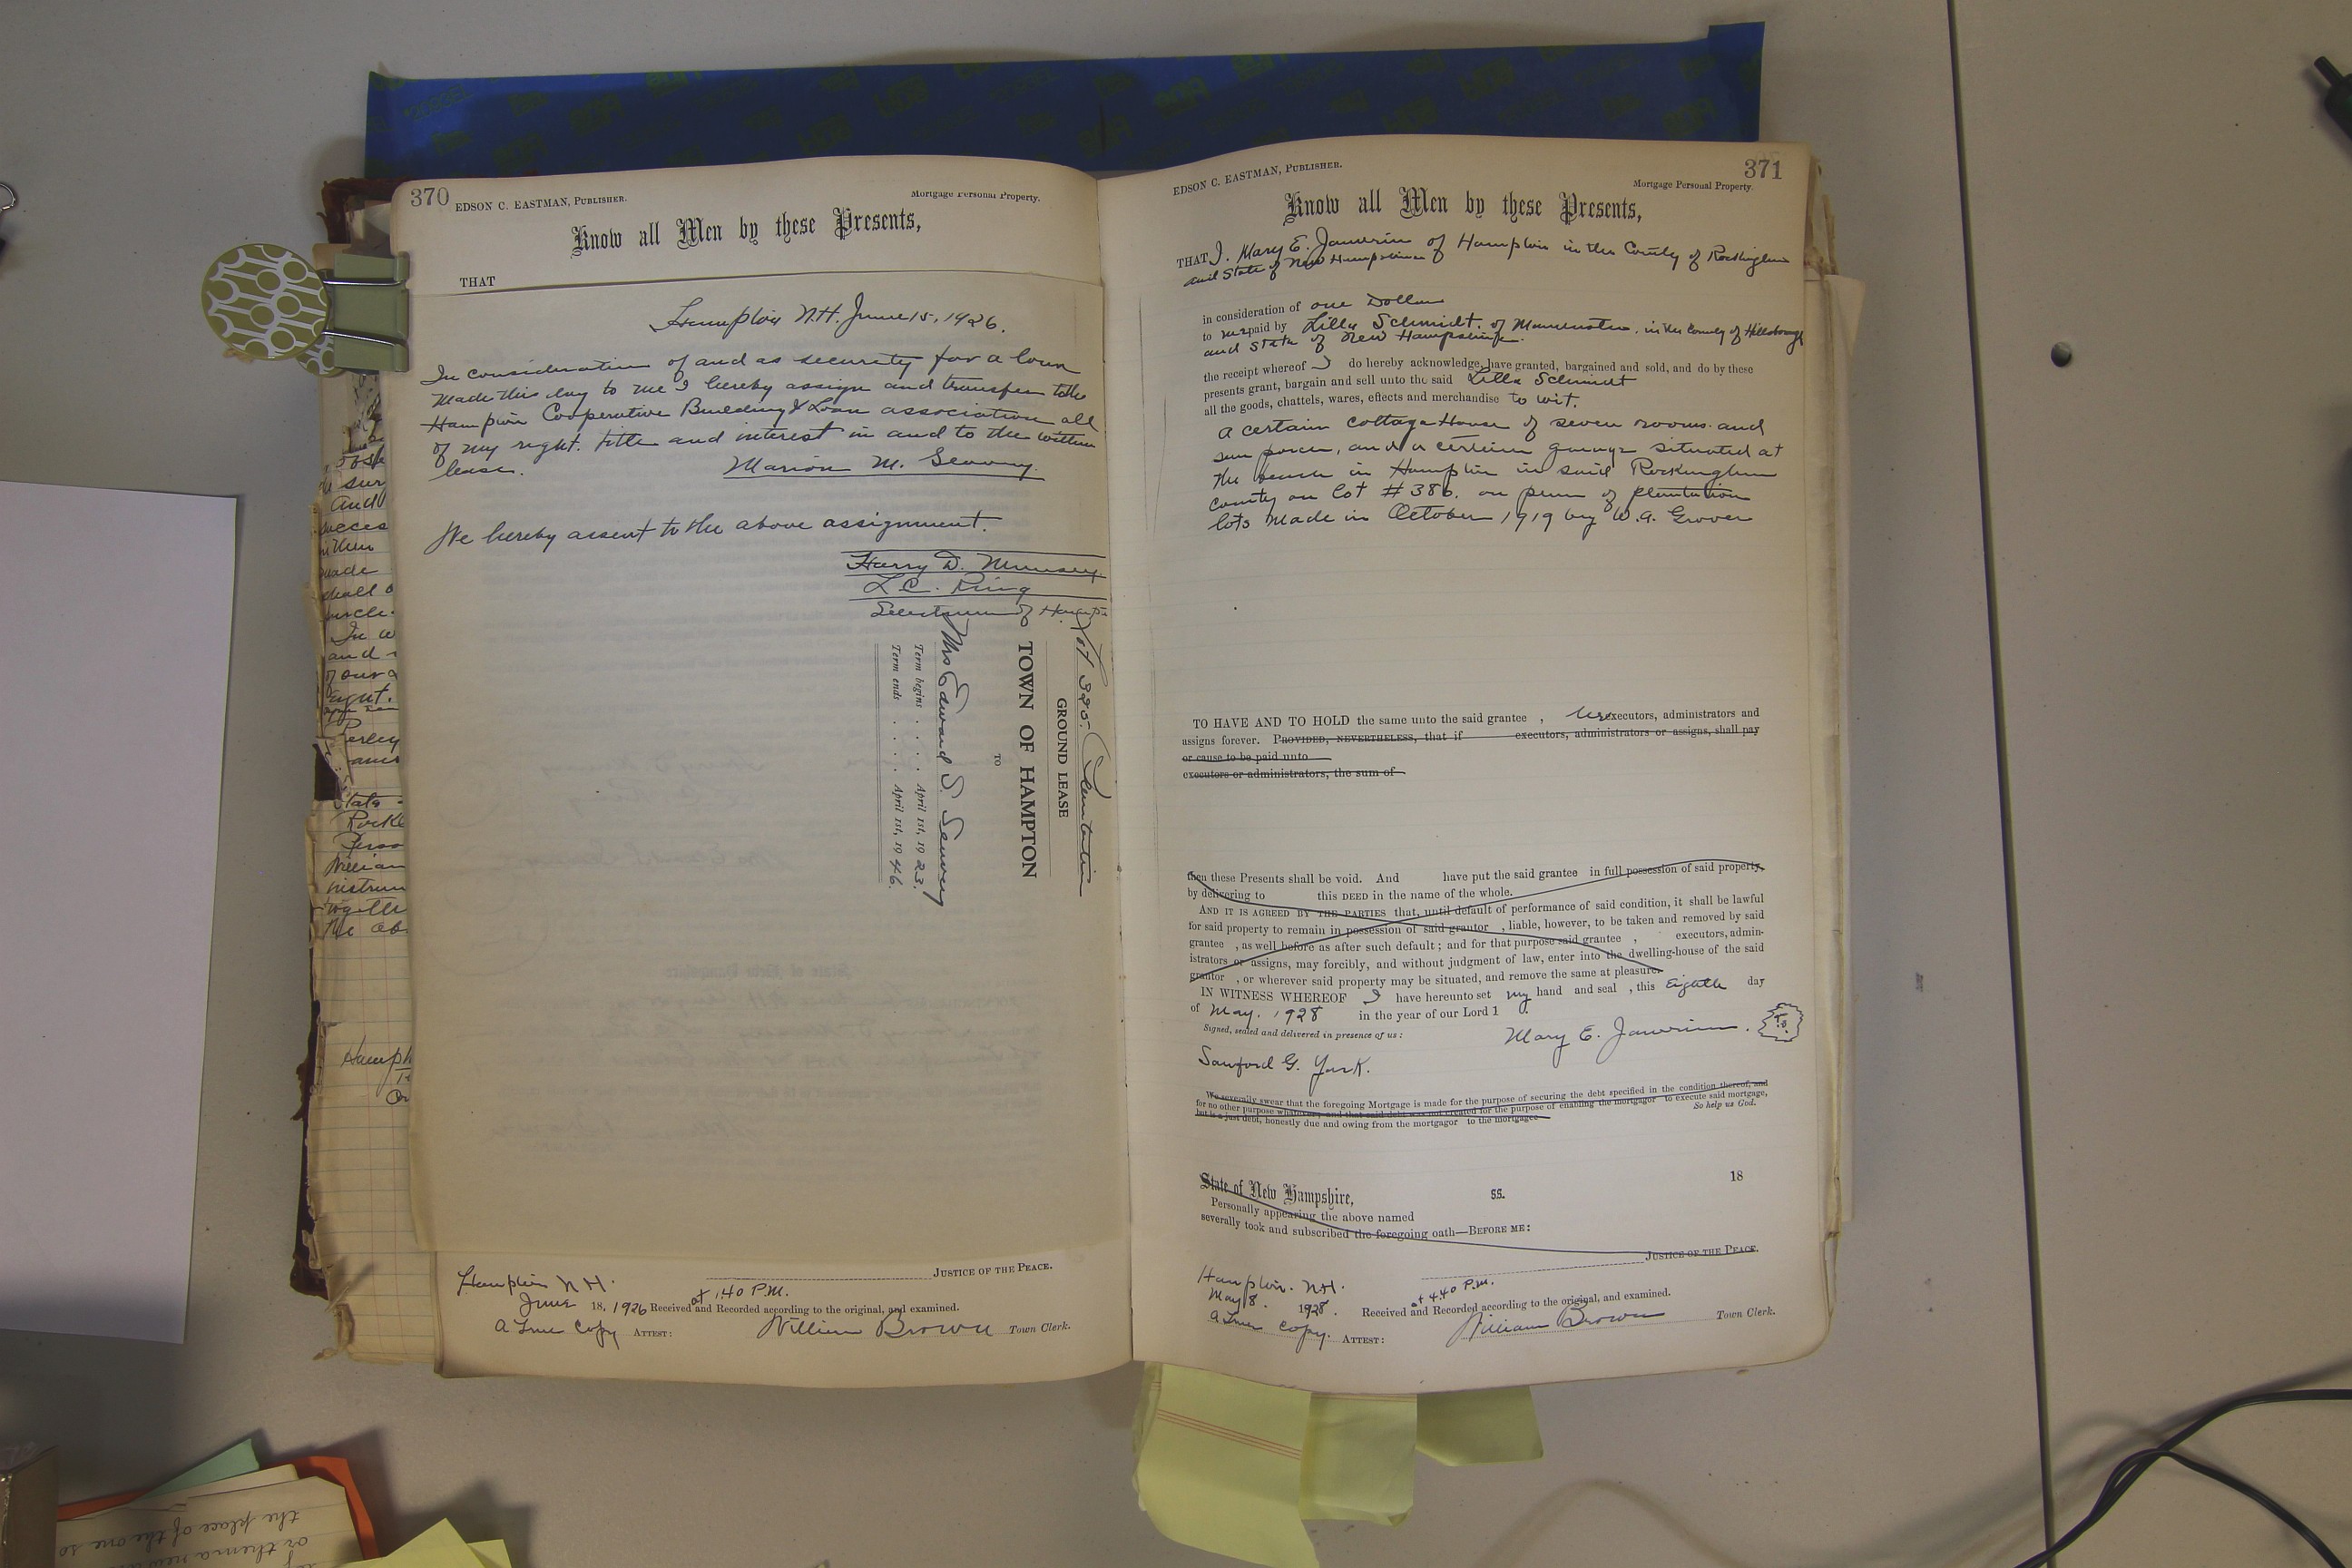 370
EDSON C. EASTMAN, PUBLISHER.
Mortgage Personal Property.
Know all Men by these Presents,
THAT
Hampton N.H. June 15, 1926.
In consideration of and as security for a loan
made this day to me I hereby assign and transfer to the
Hampton Cooperative Building & Loan association all
of my right. title and interest in and to the within
lease.
Marion M. Seavey
We hereby assent to the above assignment.
Harry D. Munsey
L.C. Ring
Selectmen of Hampton
Lot 325. Plantation
GROUND LEASE
TOWN OF HAMPTON
TO
Mrs Edward S. Seavey
Term begins . . . . April 1st, 1923.
Term ends . . . . April 1st, 1946.
JUSTICE OF THE PEACE.
Hampton N.H.
June 18, 1926 at 1.40 P.M. Received and Recorded according to the original, and examined.
A True Copy ATTEST: William Brown Town Clerk.
371
EDSON C. EASTMAN, PUBLISHER.
Mortgage Personal Property.
Know all Men by these Presents,
THAT I. Mary E. Janvrin of Hampton in the County of Rockingham
and State of New Hampshire
in consideration of one Dollar
to me paid by Lilla Schmidt. of Manchester. in the County of Hillsborough
and State of New Hampshire.
the receipt whereof I do hereby acknowledge, have granted, bargained and sold, and do by these
presents grant, bargain and sell unto the said Lilla Schmidt
all the goods, chattels, wares, effects and merchandise to wit.
A certain cottage House of seven rooms and
sun porch, and a certain garage situated at
the beach in Hampton in said Rockingham
county on lot # 386. on plan of plantation
lots made in October 1919 by W.A. Grover
TO HAVE AND TO HOLD the same unto the said grantee , her executors, administrators and
assigns forever. PROVIDED, NEVERTHELESS, that if executors, administrators or assigns, shall pay
or cause to be paid unto
executors or administrators, the sum of
then these Presents shall be void. And have put the said grantee in full possession of said property,
by delivering to this DEED in the name of the whole.
AND IT IS AGREED BY THE PARTIES that, until default of performance of said condition, it shall be lawful
for said property to remain in possession of said grantor , liable, however, to be taken and removed by said
grantee , as well before as after such default; and for that purpose said grantee , executors, admin-
istrators or assigns, may forcibly, and without judgment of law, enter into the dwelling-house of the said
grantor , or wherever said property may be situated, and remove the same at pleasure.
IN WITNESS WHEREOF I have hereunto set my hand and seal , this Eighth day
of May. 1928 in the year of our Lord 1
Signed, sealed and delivered in presence of us:
Mary E. Janvrin.
Sanford G. York.
We severally swear that the foregoing Mortgage is made for the purpose of securing the debt specified in the condition thereof, and
for no other purpose whatever, and that said debt was not created for the purpose of enabling the mortgagor to execute said mortgage,
but is a just debt, honestly due and owing from the mortgagor to the mortgagee So help us God.
State of New Hampshire, SS. 18
Personally appearing the above named
severally took and subscribed the foregoing oath—BEFORE ME:
JUSTICE OF THE PEACE.
Hampton. N.H.
May 8. 1928. at 4.40 P.M. Received and Recorded according to the original, and examined.
A True Copy. ATTEST: William Brown Town Clerk.